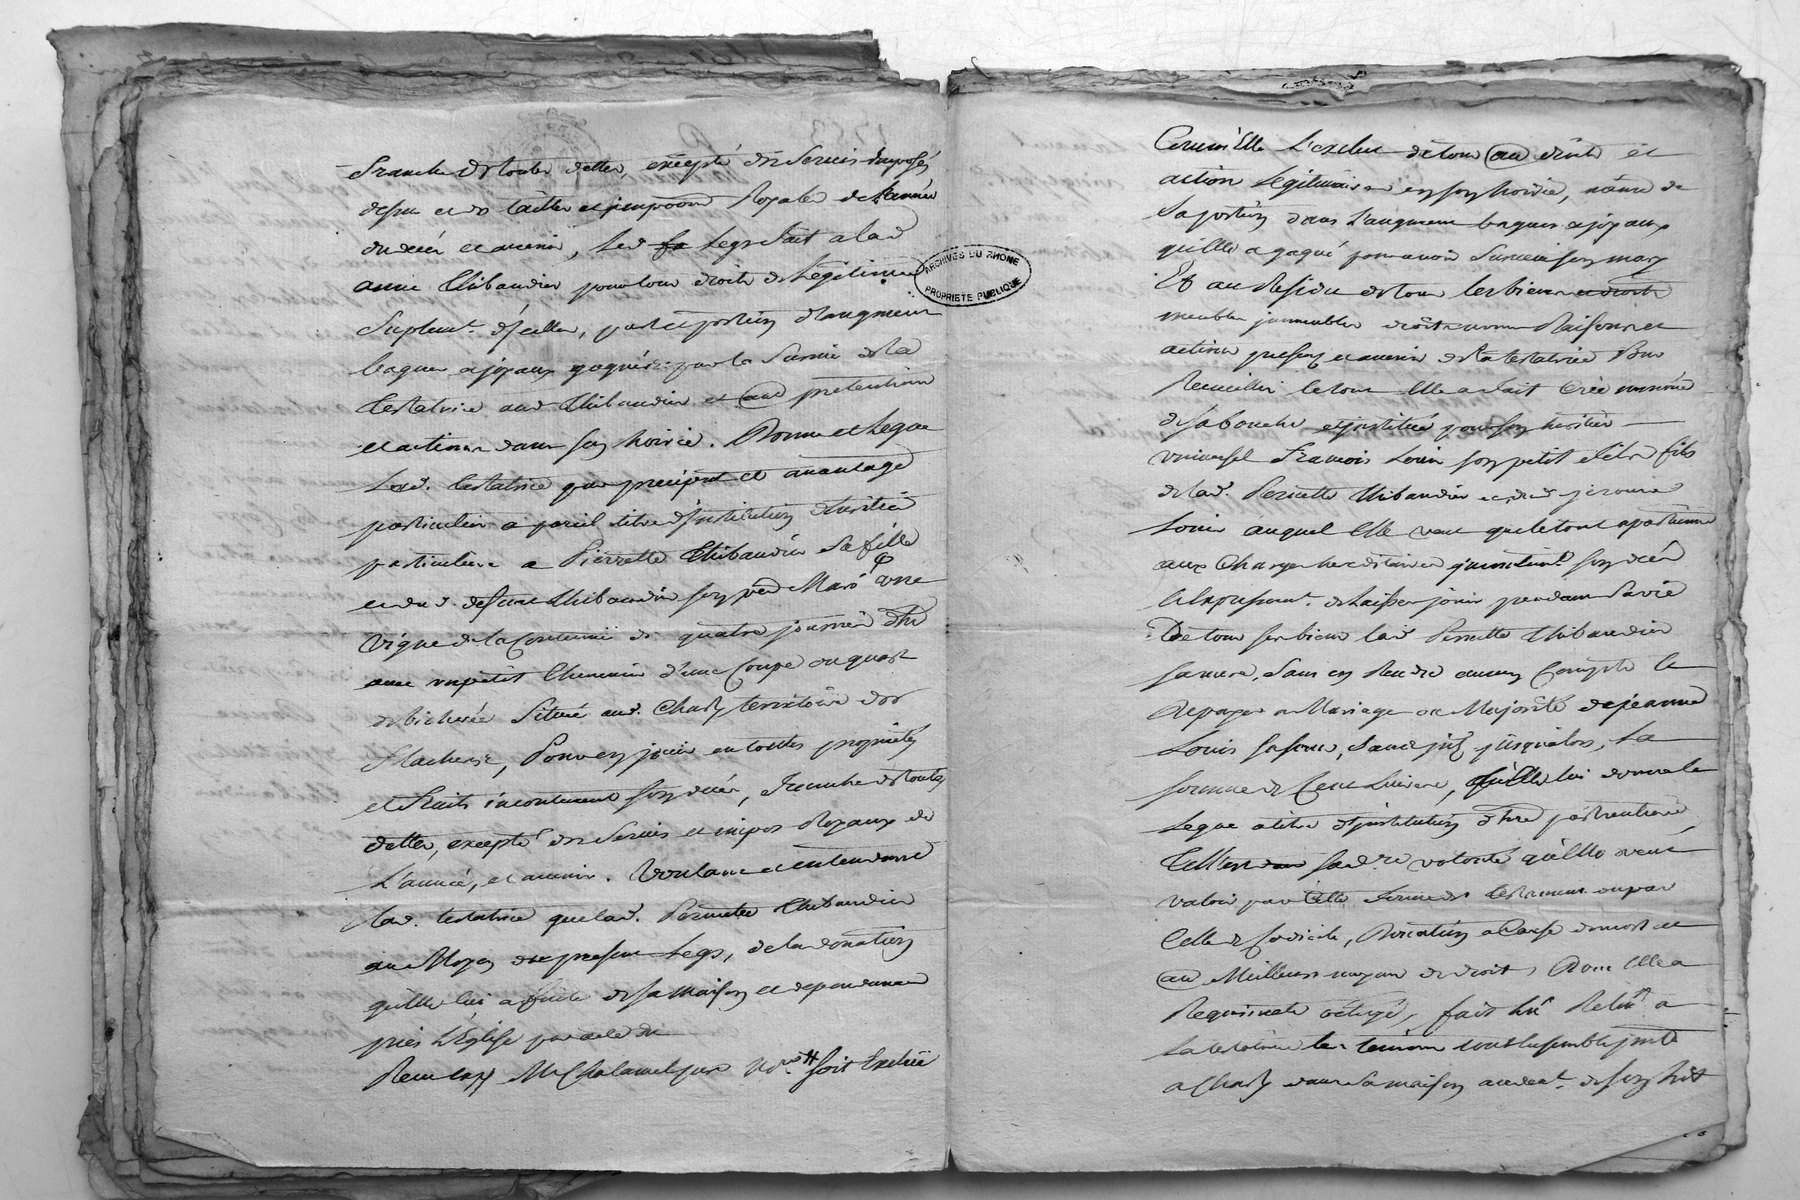 franche de toutes dettes, excepté des servis imposés
dessus et des tailles et impositions Royales de l'année
du décés et avenir, Led. legs fait a lad.
anne Thibaudier pour tous droits de Legitime
suplemt. d'icelles, part et portion d'augment
bagues et joyaux gagnés par la survie de la
testatrice aud. Thibaudier et autres pretentions
et actions dans son hoirie. Donne et Legue
Lad. testatrice par preciput et avantage
particulier a pareil titre d'institution d'heritier
particuliere a Pierrette Thibaudier sa fille
et dud. defunt Thibaudier son pere Mari une
vigne de la Contenüe de quatre journées d'he
avec un petit Chemin d'une Coupe ou quart
de bicherée Située aud. Charly territoire des
Flacheres, Pour en jouir en toutes proprietés
et fruits incontinent son décés, franche de toutes
dettes, excepté des servis et impos Royaux de
L'année, et avenir. Voulant et entendant
lad. testatrice que lad. Pierrette Thibaudier
au Moyen du present Legs, de la donation
qu'elle lui a faite de sa maison et dependances
près L'Eglise par acte du
Recu par Me Chalamel jura Nore. soit Exclue
ARCHIVES DU RHONE
PROPRIETE PUBLIQUE
Comme Elle L'exclut de tous autres droits et
action Legitimaire en son hoirie, même de
Sa portion dans L'augment bagues et joyaux
qu'elle a gagné pour avoir Survécu son mary
Et au Residu de tous les biens
meubles immeubles droits noms Raisons et
actions presens et avenir de la testatrice Pour
Recueillir le tout Elle a fait Créé nommé
de sa bouche et institué pour son heritier
universel François Louis son petit fils
de lad. Pierrette Thibaudier et dud. jerome
Louis auquel Elle veut que le tout apartienne
aux Charges hereditaires incontint. son décés
de Laisser jouir pendant Sa vie
De tous ses biens lad. Pierrette Thibaudier
sa mere, Sans en Rendre aucun Compte et
de payer au Mariage ou Majorité de jeanne
Louis sa soeur, Sans int. jusqu'alors, La
somme de Cent Livres, qu'elle lui donne et
Legue a titre d'institution d'here particuliere,
Telle est sad. re volonté qu'elle veut
valoir par Cette forme de testament ou par
Celle de Codicile, Donation a Cause de mort et
au Meilleurs moyens de droits, Dont Elle a
Requis acte octroyé, fait Lû Relû a
La testatrice les temoins tous Ensemble joint
a Charly dans la maison